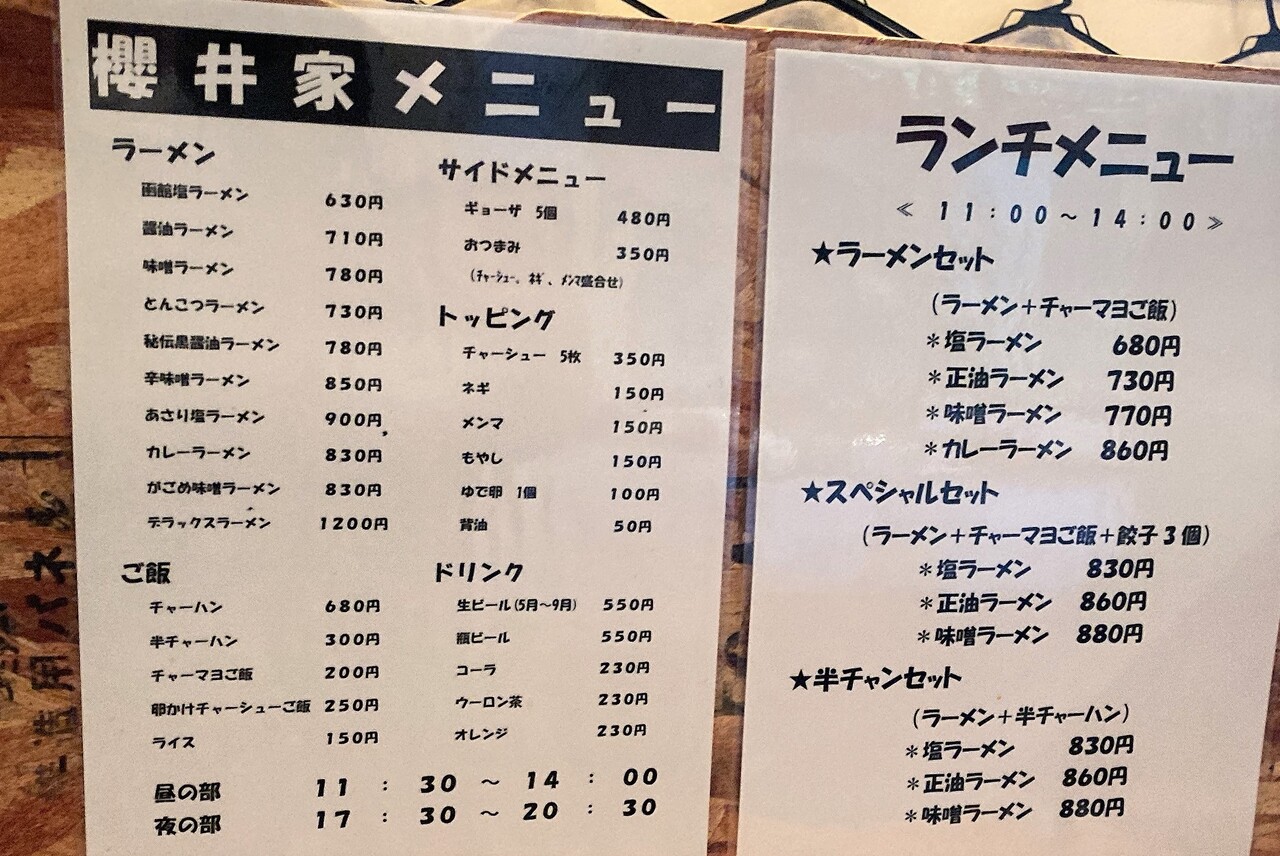 櫻井家メニュー
ラーメン
函館塩ラーメン 630円
醤油ラーメン 710円
味噌ラーメン 780円
とんこつラーメン 730円
秘伝黒醤油ラーメン 780円
辛味噌ラーメン 850円
あさり塩ラーメン 900円
カレーラーメン 830円
がごめ味噌ラーメン 830円
デラックスラーメン 1200円
ご飯
チャーハン 680円
半チャーハン 300円
チャーマヨご飯 200円
卵かけチャーシューご飯 250円
ライス 150円
サイドメニュー
ギョーザ 5個 480円
おつまみ 350円
(チャーシュー、ネギ、メンマ盛合せ)
トッピング
チャーシュー 5枚 350円
ネギ 150円
メンマ 150円
もやし 150円
ゆで卵 1個 100円
背油 50円
ドリンク
生ビール(5月～9月) 550円
瓶ビール 550円
コーラ 230円
ウーロン茶 230円
オレンジ 230円
昼の部 11:30～14:00
夜の部 17:30～20:30
ランチメニュー
≪11:00～14:00≫
★ラーメンセット
(ラーメン＋チャーマヨご飯)
＊塩ラーメン 680円
＊正油ラーメン 730円
＊味噌ラーメン 770円
＊カレーラーメン 860円
★スペシャルセット
(ラーメン＋チャーマヨご飯＋餃子3個)
＊塩ラーメン 830円
＊正油ラーメン 860円
＊味噌ラーメン 880円
★半チャンセット
(ラーメン＋半チャーハン)
＊塩ラーメン 830円
＊正油ラーメン 860円
＊味噌ラーメン 880円